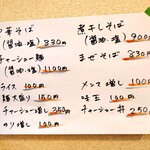 中華そば
(醤油、塩) 830円
チャーシュー麺
(醤油、塩) 1100円
ライス 100円
麺大盛り 150円
チャーシュー増し 350円
のり増し 100円
煮干しそば
(醤油、塩) 900
まぜそば 830円
メンマ増し 100円
味玉 100円
チャーシュー丼 250